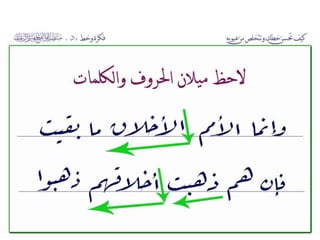 كيف تحسن خطك وتتخلص من عيوبه
فكرة وخط
لاحظ ميلان الحروف والكلمات
وإنما الأمم الأخلاق ما بقيت
فإن هم ذهبت أخلاقهم ذهبوا